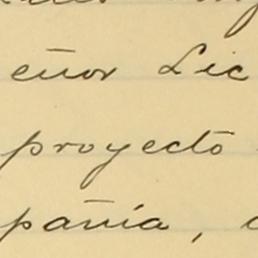 eñor Lic
proyecto
pañia,